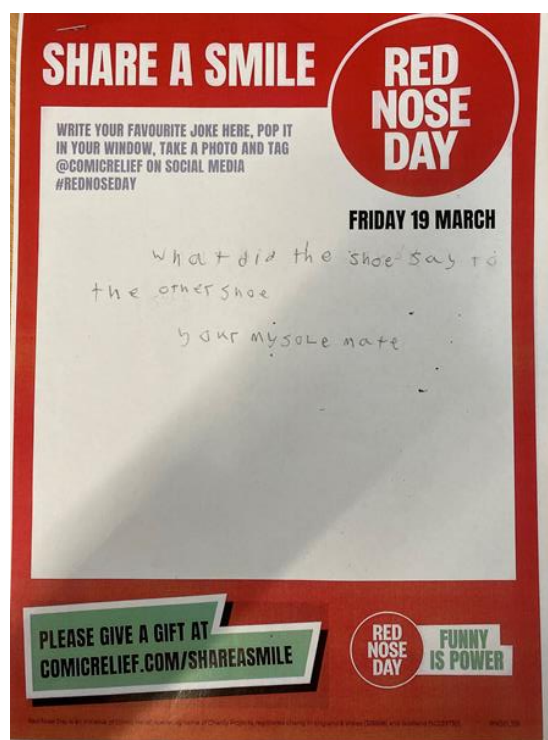 SHARE A SMILE
RED
NOSE
DAY
WRITE YOUR FAVOURITE JOKE HERE, POP IT
IN YOUR WINDOW, TAKE A PHOTO AND TAG
@COMICRELIEF ON SOCIAL MEDIA
#REDNOSEDAY
FRIDAY 19 MARCH
what did the shoe say to
the other shoe
your my sole mate
PLEASE GIVE A GIFT AT
COMICRELIEF.COM/SHAREASMILE
RED
NOSE
DAY
FUNNY
IS POWER